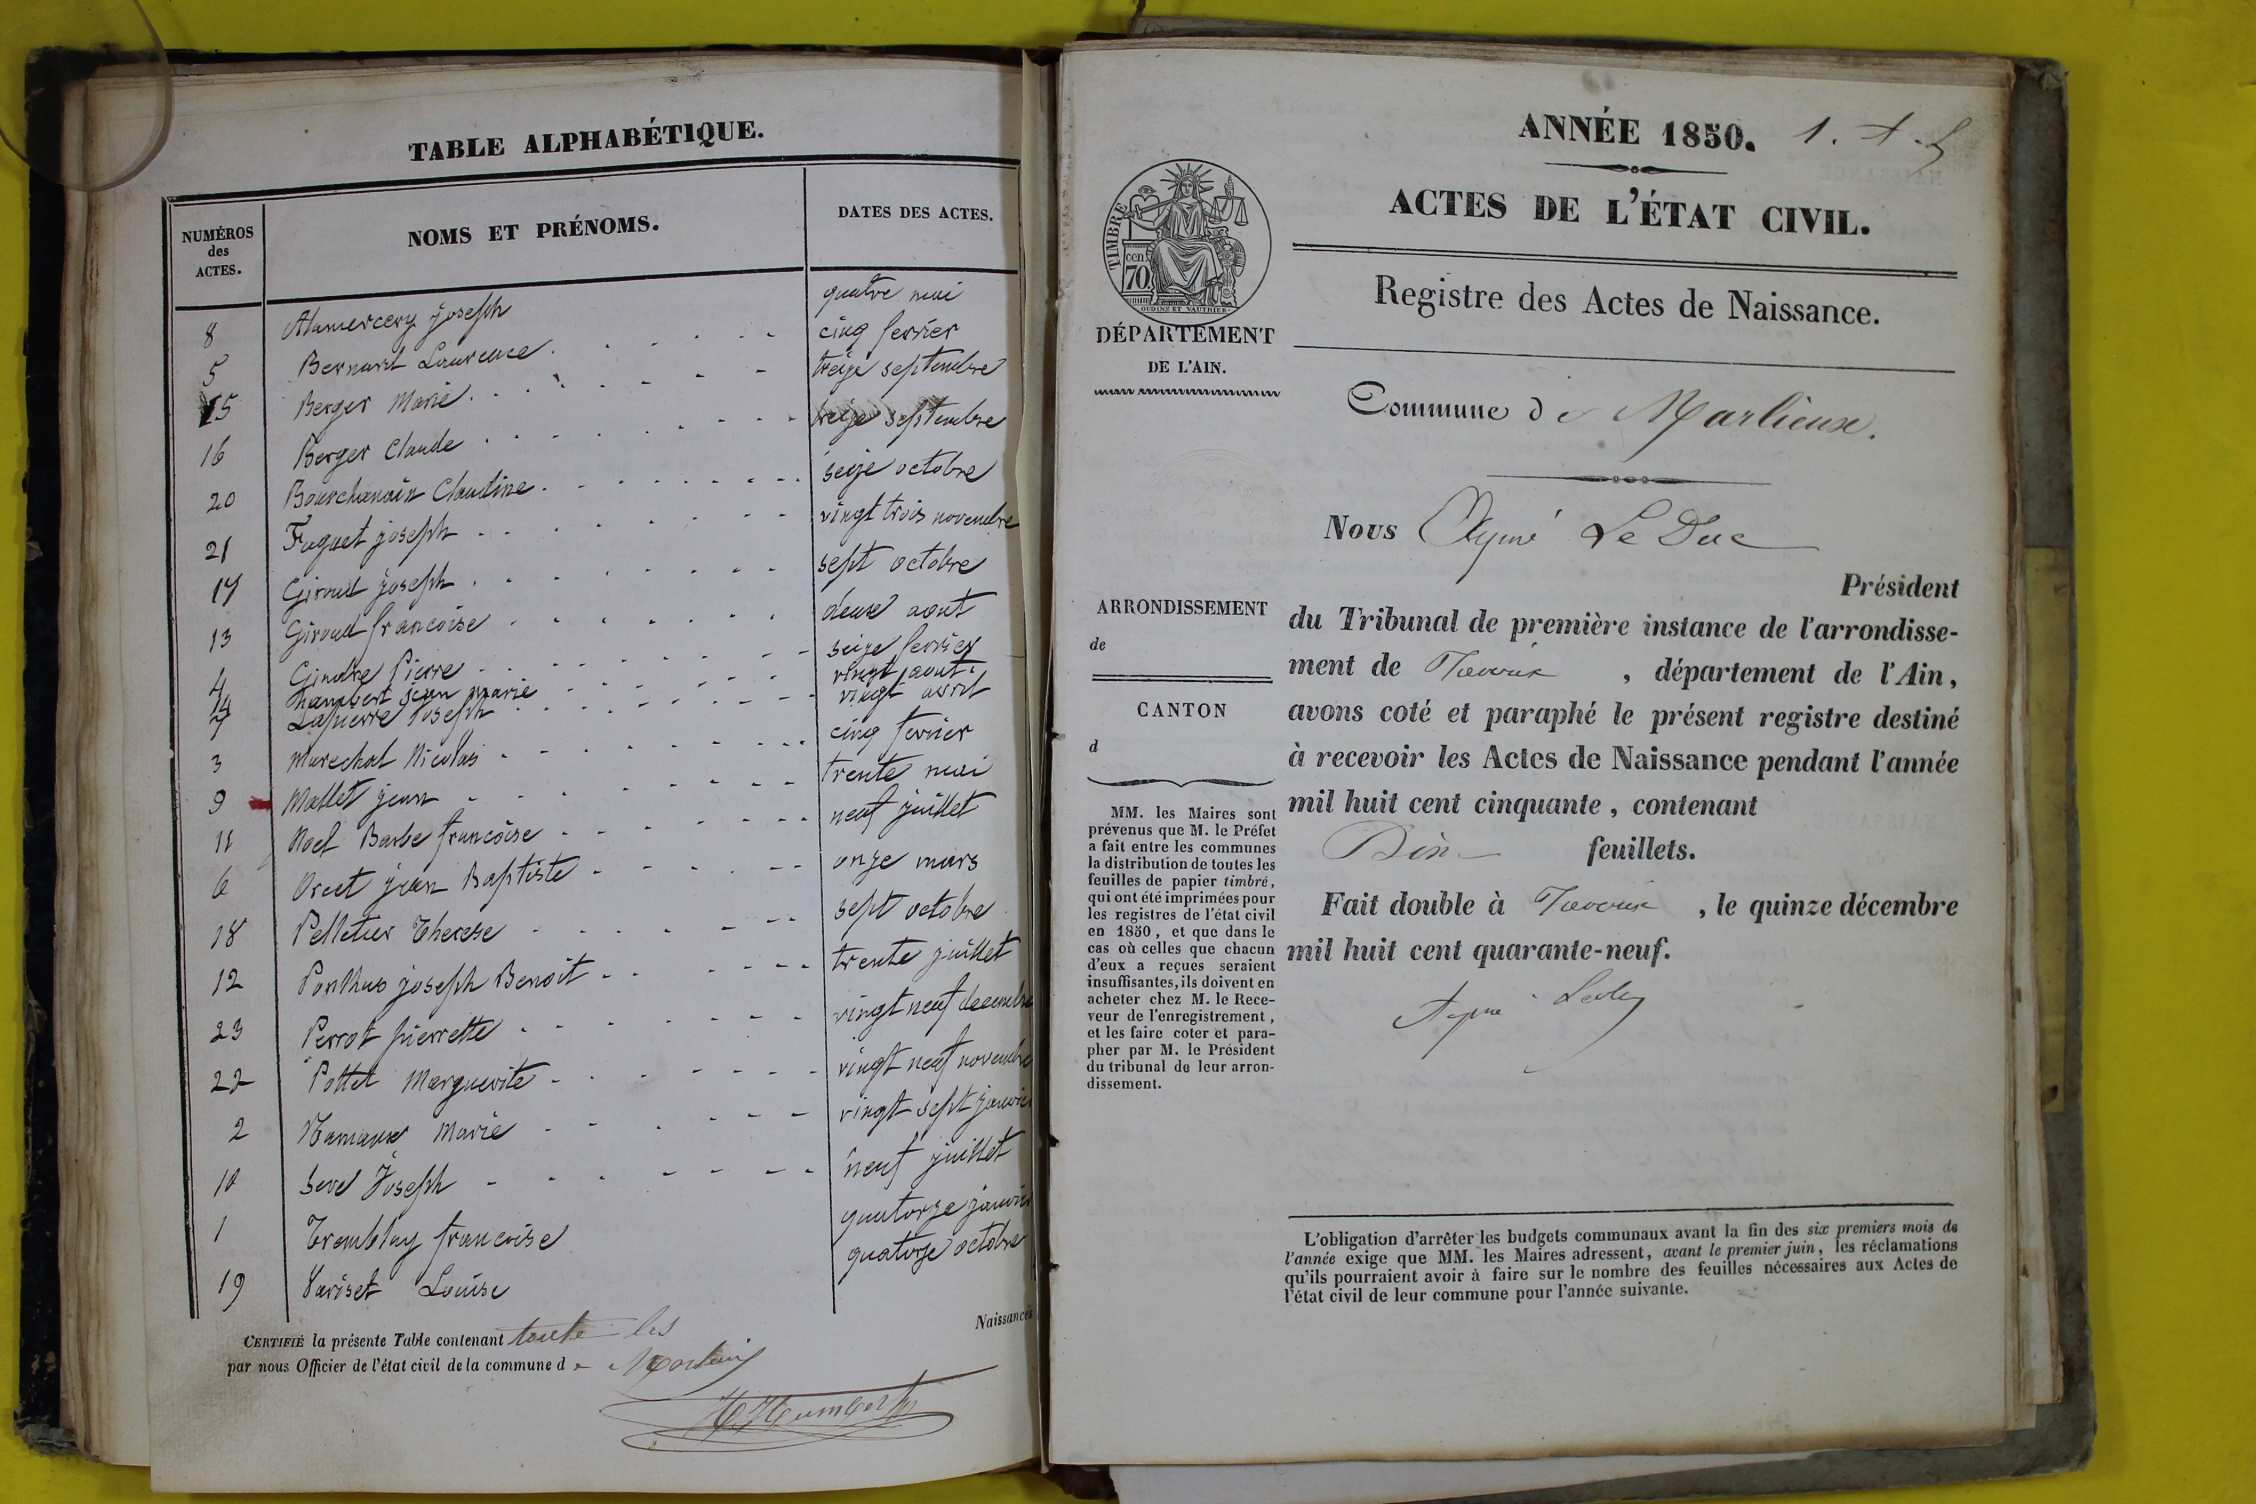 TABLE ALPHABÉTIQUE.
NUMÉROS
des
ACTES.
NOMS ET PRÉNOMS.
DATES DES ACTES.
8 Alamercery joseph quatre mai
5 Bernard Laurence cinq fevrier
15 Berger Marie treize septembre
16 Berger Claude treize septembre
20 Bourchanain Claudine seize octobre
21 Fuguet joseph vingt trois novembre
17 Giroud joseph sept octobre
13 Giroud francoise deux aout
4 Gindre Pierre seize fevrier
14 humbert jean marie vingt aout
7 Lapierre Joseph vingt avril
3 Marechal Nicolas cinq fevrier
9 Mallet jean trente mai
11 Noel Barbe francoise neuf juillet
6 Orcet jean Baptiste onze mars
18 Pelletier Therese sept octobre
12 Ponthus joseph Benoit trente juillet
23 Perrot pierrette vingt neuf decembre
22 Pottet Marguerite vingt neuf novembre
2 Ramaux Marie vingt sept janvier
10 Seve Joseph neuf juillet
1 Tremblay francoise quatorze janvier
19 Variset Louise quatorze octobre
CERTIFIÉ la présente Table contenant toute les Naissances
par nous Officier de l'état civil de la commune de Marlieux
Humbert
ANNÉE 1850. 1.
ACTES DE L'ÉTAT CIVIL.
TIMBRE
70
cen
OUDINE ET VAUTHIER
DÉPARTEMENT
DE L'AIN.
Registre des Actes de Naissance.
Commune de Marlieux.
Nous Aymé Le Duc
Président
du Tribunal de première instance de l'arrondisse-
ment de Trévoux, département de l'Ain,
avons coté et paraphé le présent registre destiné
à recevoir les Actes de Naissance pendant l'année
mil huit cent cinquante, contenant
Dix feuillets.
Fait double à Trévoux, le quinze décembre
mil huit cent quarante-neuf.
Ayme Leduc
ARRONDISSEMENT
de
CANTON
d
MM. les Maires sont
prévenus que M. le Préfet
a fait entre les communes
la distribution de toutes les
feuilles de papier timbré,
qui ont été imprimées pour
les registres de l'état civil
en 1850, et que dans le
cas où celles que chacun
d'eux a reçues seraient
insuffisantes, ils doivent en
acheter chez M. le Rece-
veur de l'enregistrement,
et les faire coter et para-
pher par M. le Président
du tribunal de leur arron-
dissement.
L'obligation d'arrêter les budgets communaux avant la fin des six premiers mois de
l'année exige que MM. les Maires adressent, avant le premier juin, les réclamations
qu'ils pourraient avoir à faire sur le nombre des feuilles nécessaires aux Actes de
l'état civil de leur commune pour l'année suivante.